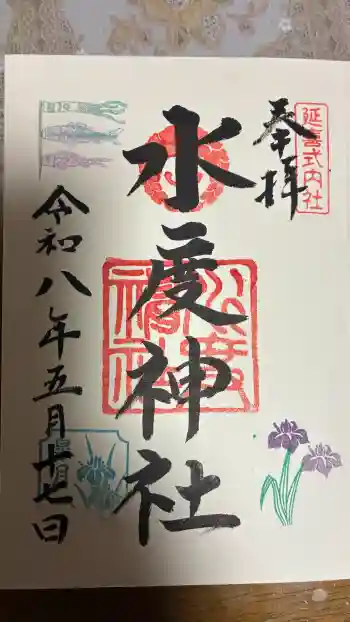 奉拝
延喜式内社
水度神社
水度神社
令和八年五月十七日